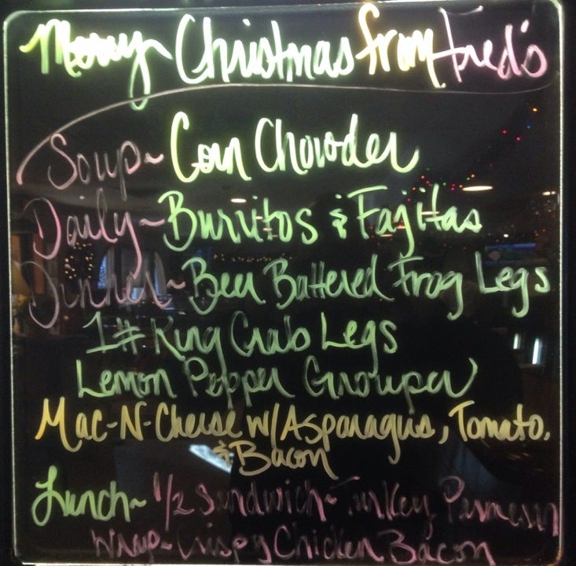 Merry Christmas from Fred's
Soup~ Corn Chowder
Daily~ Burritos & Fajitas
Dinner~ Beer Battered Frog Legs
1# King Crab Legs
Lemon Pepper Grouper
Mac-N-Cheese w/Asparagus, Tomato,
& Bacon
Lunch~ 1/2 Sandwich~ Turkey Parmesan
Wrap~ Crispy Chicken Bacon